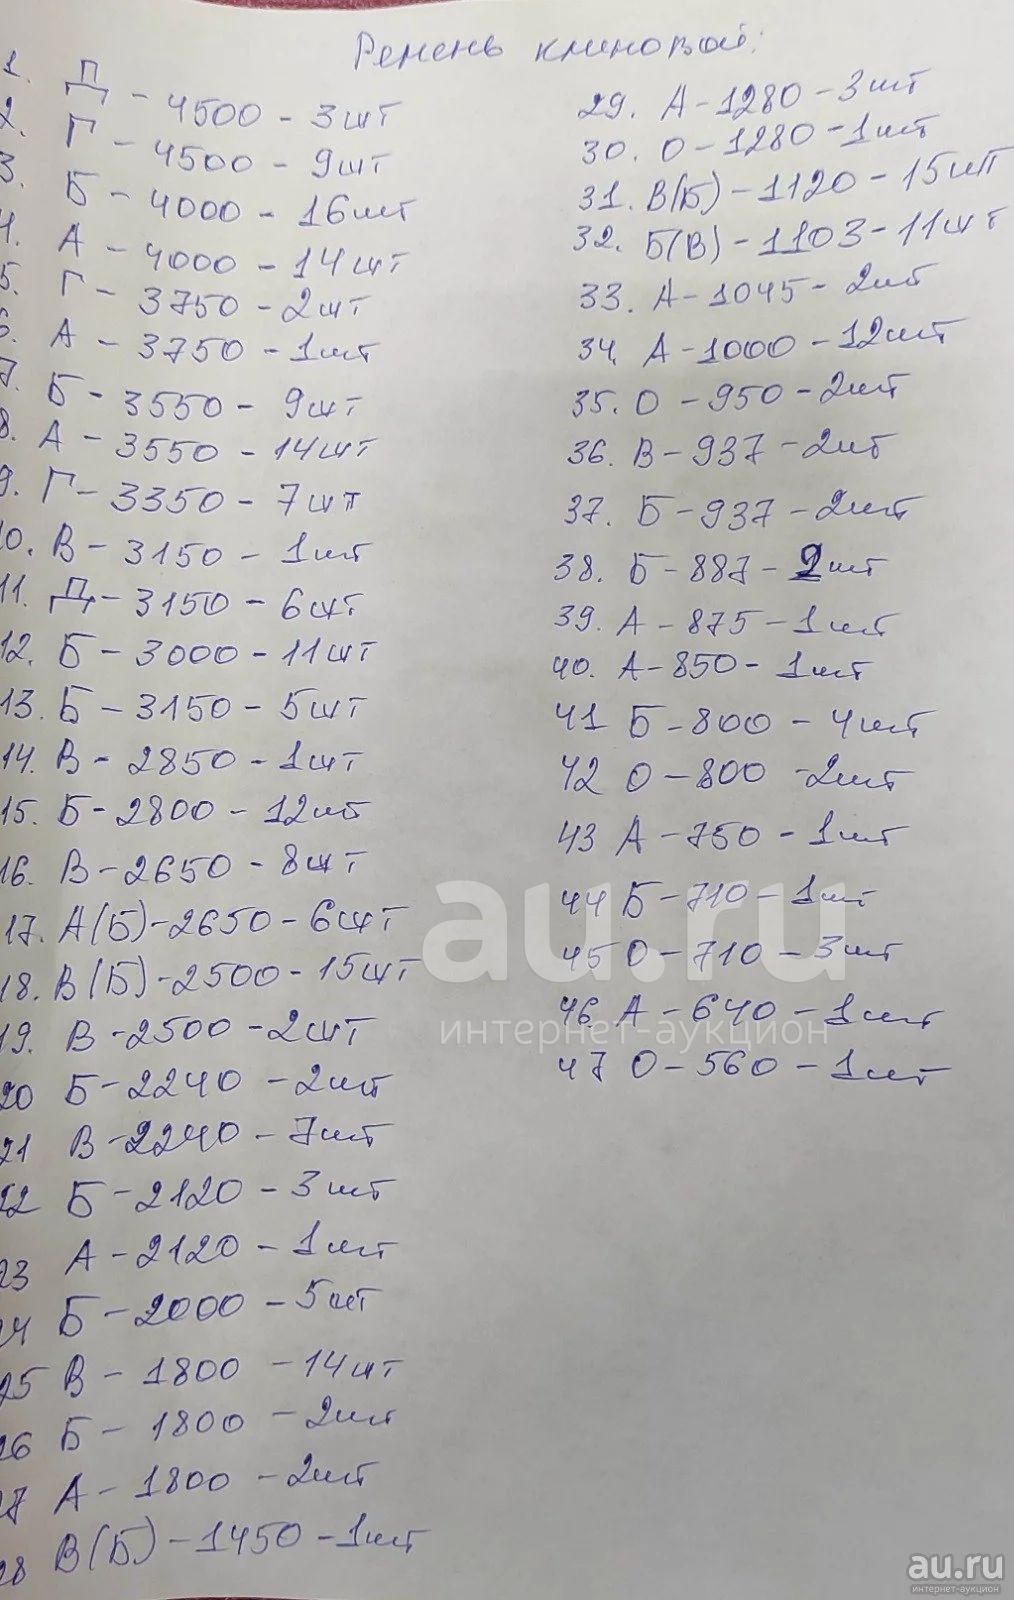 Ремень клиновой:
1. Д - 4500 - 3шт
2. Г - 4500 - 9шт
3. Б - 4000 - 16шт
4. А - 4000 - 14шт
5. Г - 3750 - 2шт
6. А - 3750 - 1шт
7. Б - 3550 - 9шт
8. А - 3550 - 14шт
9. Г - 3350 - 7шт
10. В - 3150 - 1шт
11. Д - 3150 - 6шт
12. Б - 3000 - 11шт
13. Б - 3150 - 5шт
14. В - 2850 - 1шт
15. Б - 2800 - 12шт
16. В - 2650 - 8шт
17. А(Б) - 2650 - 6шт
18. В(Б) - 2500 - 15шт
19. В - 2500 - 2шт
20 Б - 2240 - 2шт
21 В - 2240 - 7шт
22 Б - 2120 - 3шт
23 А - 2120 - 1шт
24 Б - 2000 - 5шт
25 В - 1800 - 14шт
26 Б - 1800 - 2шт
27 А - 1800 - 2шт
28 В(Б) - 1450 - 1шт
29. А - 1280 - 3шт
30. О - 1280 - 1шт
31. В(Б) - 1120 - 15шт
32. Б(В) - 1103 - 11шт
33. А - 1045 - 2шт
34. А - 1000 - 12шт
35. О - 950 - 2шт
36. В - 937 - 2шт
37. Б - 937 - 2шт
38. Б - 887 - 2шт
39. А - 875 - 1шт
40. А - 850 - 1шт
41 Б - 800 - 4шт
42 О - 800 - 2шт
43 А - 750 - 1шт
44 Б - 710 - 1шт
45 О - 710 - 3шт
46 А - 640 - 1шт
47 О - 560 - 1шт
au.ru
интернет-аукцион
au.ru
интернет-аукцион